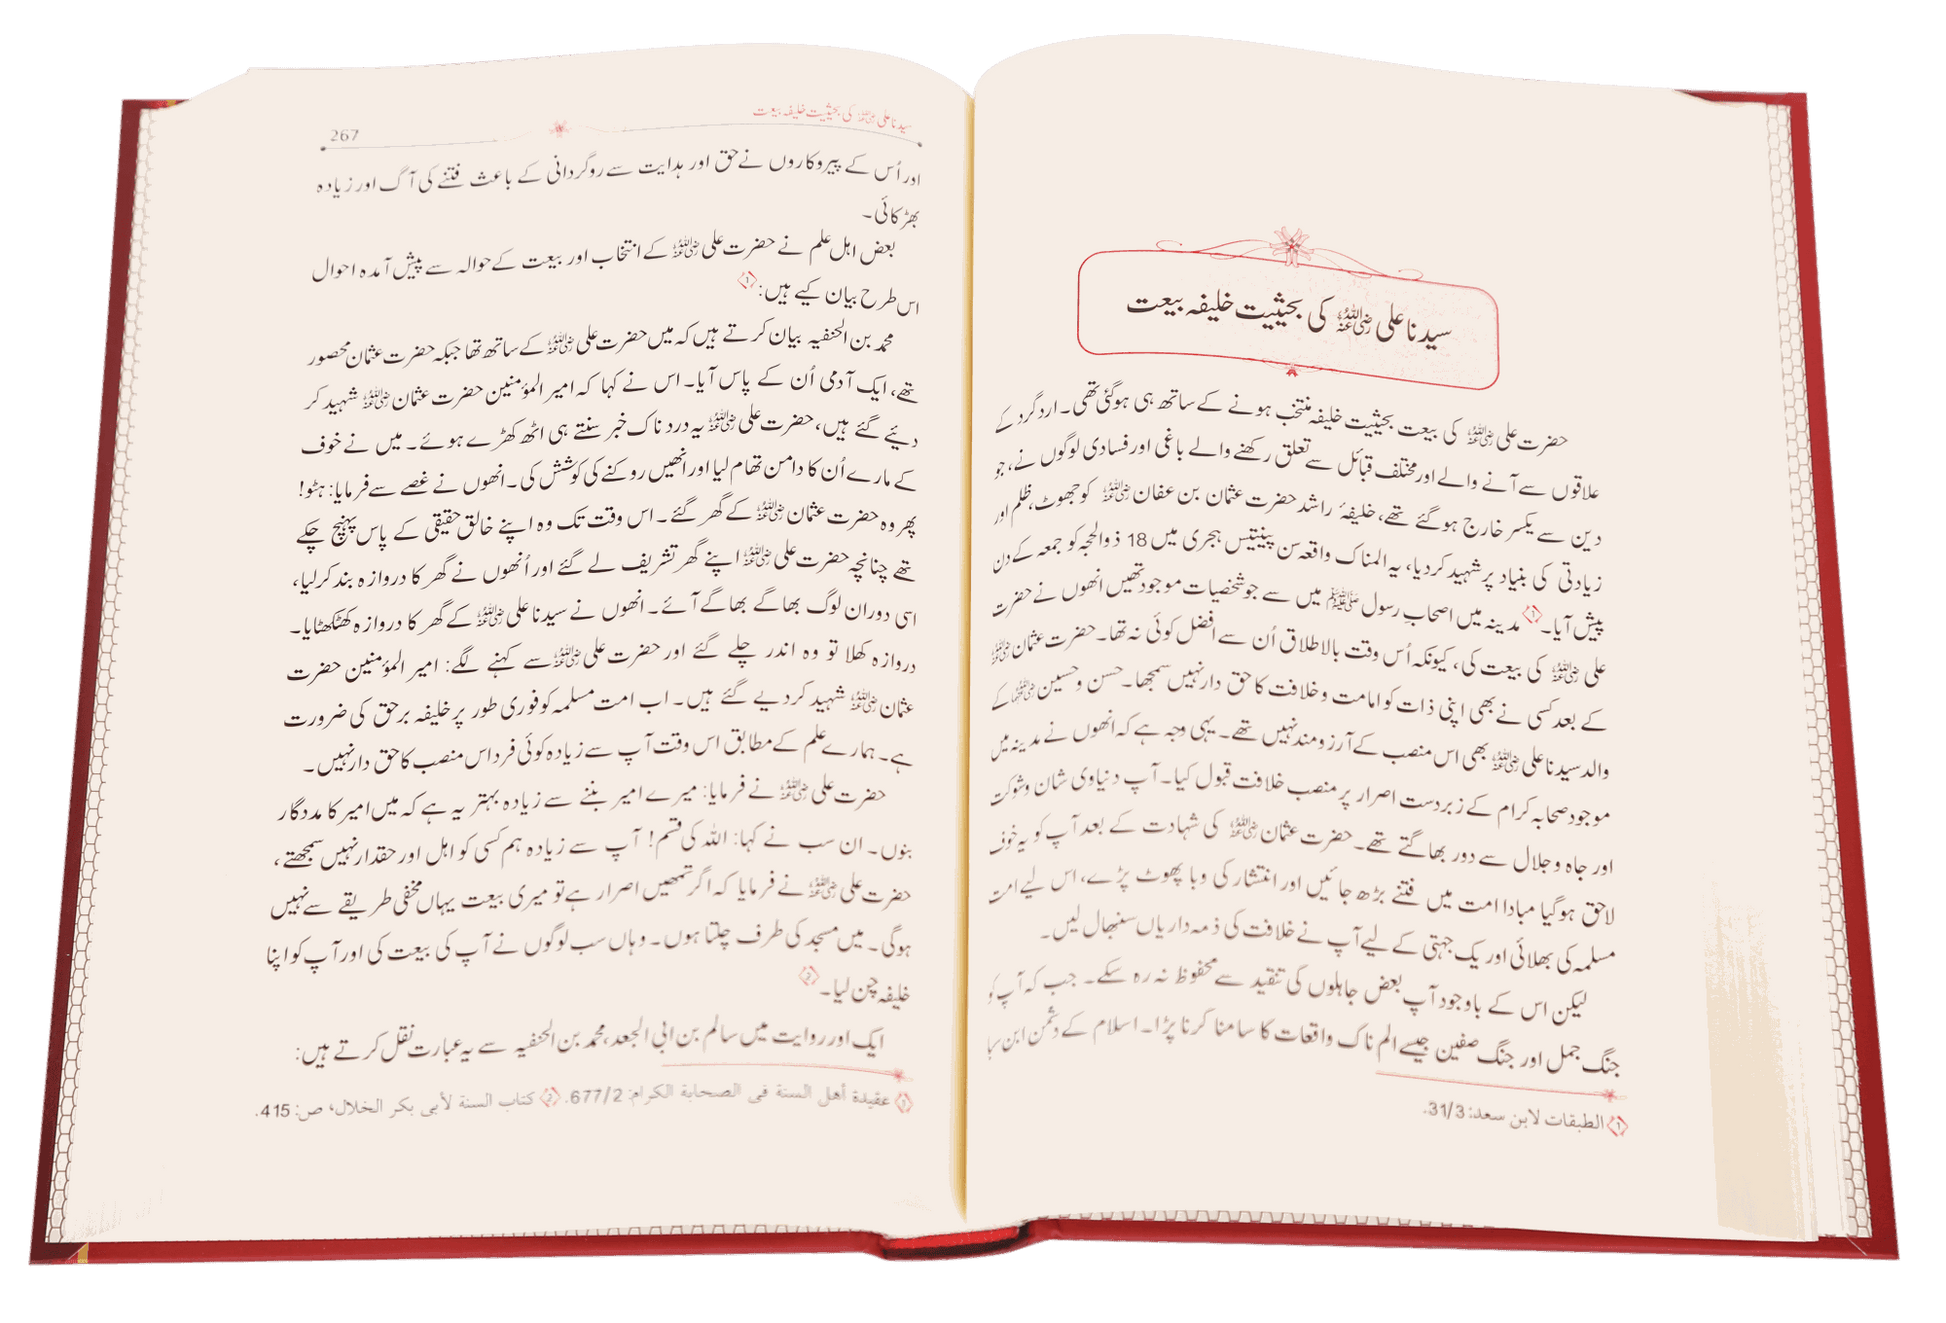 سیدنا علی رضی اللہ عنہ کی بحیثیت خلیفہ بیعت
حضرت علی رضی اللہ عنہ کی بیعت بحیثیت خلیفہ منتخب ہونے کے ساتھ ہی ہوگئی تھی۔ اردگرد کے
علاقوں سے آنے والے اور مختلف قبائل سے تعلق رکھنے والے باغی اور فسادی لوگوں نے، جو
دین سے یکسر خارج ہوگئے تھے، خلیفۂ راشد حضرت عثمان بن عفان رضی اللہ عنہ کو جھوٹ، ظلم اور
زیادتی کی بنیاد پر شہید کردیا، یہ المناک واقعہ سن پینتیس ہجری میں 18 ذوالحجہ کو جمعہ کے دن
پیش آیا۔ 1 مدینہ میں اصحابِ رسول صلی اللہ علیہ وسلم میں سے جو شخصیات موجود تھیں انھوں نے حضرت
علی رضی اللہ عنہ کی بیعت کی، کیونکہ اُس وقت بالاطلاق اُن سے افضل کوئی نہ تھا۔ حضرت عثمان رضی اللہ عنہ
کے بعد کسی نے بھی اپنی ذات کو امامت و خلافت کا حق دار نہیں سمجھا۔ حسن و حسین رضی اللہ عنہما کے
والد سیدنا علی رضی اللہ عنہ بھی اس منصب کے آرزو مند نہیں تھے۔ یہی وجہ ہے کہ انھوں نے مدینہ میں
موجود صحابہ کرام کے زبردست اصرار پر منصب خلافت قبول کیا۔ آپ دنیاوی شان و شوکت
اور جاہ و جلال سے دور بھاگتے تھے۔ حضرت عثمان رضی اللہ عنہ کی شہادت کے بعد آپ کو یہ خوف
لاحق ہوگیا مبادا امت میں فتنے بڑھ جائیں اور انتشار کی وبا پھوٹ پڑے، اس لیے امت
مسلمہ کی بھلائی اور یک جہتی کے لیے آپ نے خلافت کی ذمہ داریاں سنبھال لیں۔
لیکن اس کے باوجود آپ بعض جاہلوں کی تنقید سے محفوظ نہ رہ سکے۔ جب کہ آپ کو
جنگ جمل اور جنگ صفین جیسے الم ناک واقعات کا سامنا کرنا پڑا۔ اسلام کے دشمن ابن سبا
1 الطبقات لابن سعد: 31/3.
سیدنا علی رضی اللہ عنہ کی بحیثیت خلیفہ بیعت
267
اور اُس کے پیروکاروں نے حق اور ہدایت سے روگردانی کے باعث فتنے کی آگ اور زیادہ
بھڑکائی۔
بعض اہل علم نے حضرت علی رضی اللہ عنہ کے انتخاب اور بیعت کے حوالہ سے پیش آمدہ احوال
اس طرح بیان کیے ہیں: 1
محمد بن الحنفیہ بیان کرتے ہیں کہ میں حضرت علی رضی اللہ عنہ کے ساتھ تھا جبکہ حضرت عثمان محصور
تھے، ایک آدمی اُن کے پاس آیا۔ اس نے کہا کہ امیر المؤمنین حضرت عثمان رضی اللہ عنہ شہید کر
دیئے گئے ہیں، حضرت علی رضی اللہ عنہ یہ درد ناک خبر سنتے ہی اٹھ کھڑے ہوئے۔ میں نے خوف
کے مارے اُن کا دامن تھام لیا اور انھیں روکنے کی کوشش کی۔ انھوں نے غصے سے فرمایا: ہٹو!
پھر وہ حضرت عثمان رضی اللہ عنہ کے گھر گئے۔ اس وقت تک وہ اپنے خالق حقیقی کے پاس پہنچ چکے
تھے چنانچہ حضرت علی رضی اللہ عنہ اپنے گھر تشریف لے گئے اور اُنھوں نے گھر کا دروازہ بند کرلیا،
اسی دوران لوگ بھاگے بھاگے آئے۔ انھوں نے سیدنا علی رضی اللہ عنہ کے گھر کا دروازہ کھٹکھٹایا۔
دروازہ کھلا تو وہ اندر چلے گئے اور حضرت علی رضی اللہ عنہ سے کہنے لگے: امیر المؤمنین حضرت
عثمان رضی اللہ عنہ شہید کردیے گئے ہیں۔ اب امت مسلمہ کو فوری طور پر خلیفہ برحق کی ضرورت
ہے۔ ہمارے علم کے مطابق اس وقت آپ سے زیادہ کوئی فرد اس منصب کا حق دار نہیں۔
حضرت علی رضی اللہ عنہ نے فرمایا: میرے امیر بننے سے زیادہ بہتر یہ ہے کہ میں امیر کا مددگار
بنوں۔ ان سب نے کہا: اللہ کی قسم! آپ سے زیادہ ہم کسی کو اہل اور حقدار نہیں سمجھتے،
حضرت علی رضی اللہ عنہ نے فرمایا کہ اگر تمھیں اصرار ہے تو میری بیعت یہاں مخفی طریقے سے نہیں
ہوگی۔ میں مسجد کی طرف چلتا ہوں۔ وہاں سب لوگوں نے آپ کی بیعت کی اور آپ کو اپنا
خلیفہ چن لیا۔ 2
ایک اور روایت میں سالم بن ابی الجعد، محمد بن الحنفیہ سے یہ عبارت نقل کرتے ہیں:
1 عقيدة أهل السنة فی الصحابة الكرام: 677/2. 2 كتاب السنة لأبی بكر الخلال، ص: 415.